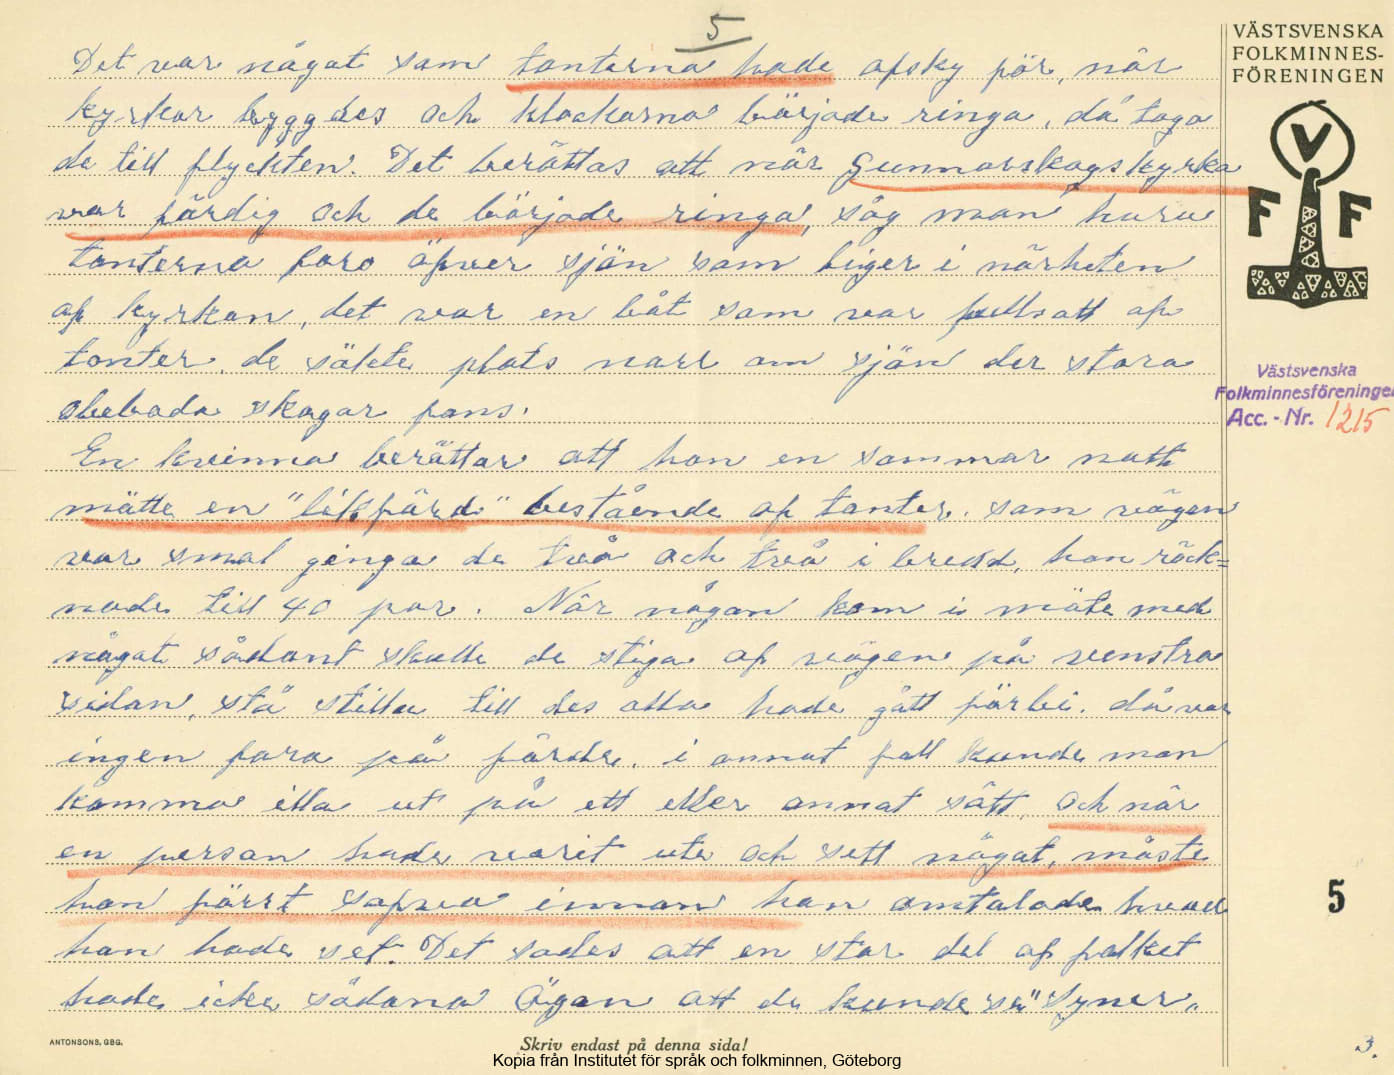 5
Det var något som tonterna hade afsky för, når
kyrkor byggdes och klockorna började ringa, då togo
de till flyckten. Det beråttas att når Gunnarskogs kyrka
var fårdig och de började ringa, såg man huru
tonterna foro öfver sjön som liger i nårheten
af kyrkan, det var en båt som var fullsatt af
tonter. de sökte plats norr om sjön der stora
obebodda skogar fans.
En kvinna beråttar att hon en sommar natt
mötte en "likfård" bestående af tonter. som vågen
var smal gingo de två och två i bredd, hon råck=
nade till 40 par. Når någon kom i möte med
något sådant skulle de stiga af vågen på venstra
sidan, stå stilla till des alla hade gått förbi. då var
ingen fara på fårde. i annat fall kunde man
komma illa ut på ett eller annat sått, och når
en person hade varit ute och sett något, måste
han förrt sofva innan han omtalade hvad
han hade set. Det sades att en stor del af folket
hade icke sådana Ögon att de kunde se "Syner"
VÄSTSVENSKA
FOLKMINNES-
FÖRENINGEN
V
F F
Västsvenska
Folkminnesföreningen
Acc. - Nr. 1215
5
3.
ANTONSONS, GBG.
Skriv endast på denna sida!
Kopia från Institutet för språk och folkminnen, Göteborg